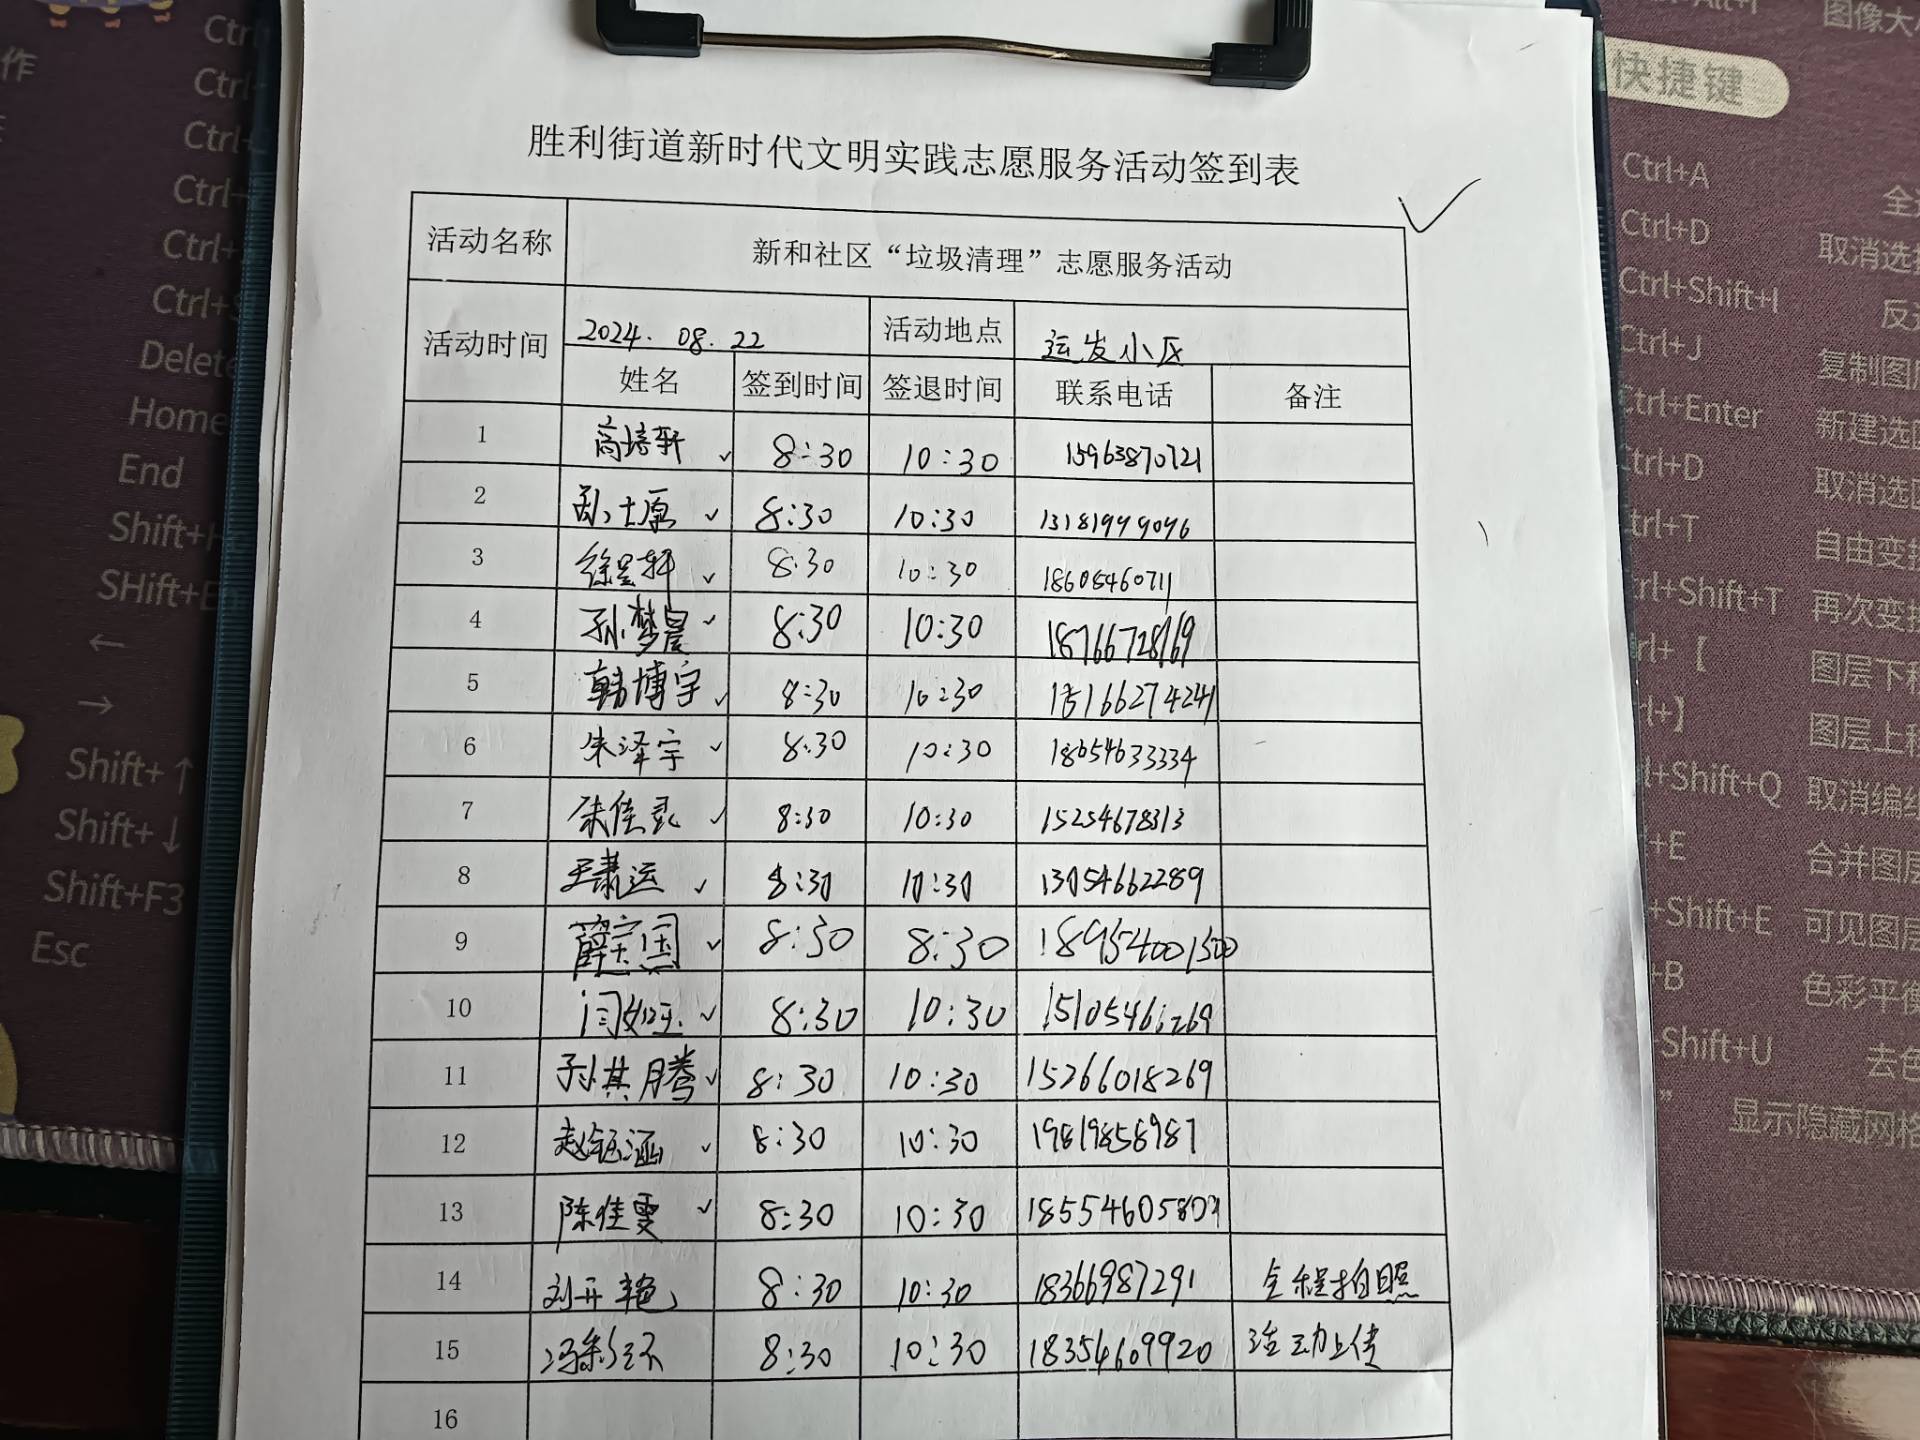 作
Ctrl
Ctrl+
Ctrl+
Ctrl+
Ctrl+
Ctrl+S
Delete
Home
End
Shift+H
SHift+E
←
→
Shift+↑
Shift+↓
Shift+F3
Esc
胜利街道新时代文明实践志愿服务活动签到表
活动名称 新和社区“垃圾清理”志愿服务活动
活动时间 2024.08.22 活动地点 运发小区
姓名 签到时间 签退时间 联系电话 备注
1 高培轩 8:30 10:30 15963870721
2 孙士原 8:30 10:30 13181999096
3 徐昱轩 8:30 10:30 18605460711
4 孙梦晨 8:30 10:30 18766728969
5 韩博宇 8:30 10:30 15166274241
6 朱泽宇 8:30 10:30 18654633334
7 8:30 10:30 15254678313
8 王肃运 8:30 10:30 13054662289
9 薛定国 8:30 8:30 18954001500
10 闫如玉 8:30 10:30
11 孙其腾 8:30 10:30 15266018269
12 赵钰涵 8:30 10:30 19819858987
13 陈佳雯 8:30 10:30
14 刘开艳 8:30 10:30 18366987291 全程拍照
15 冯彩环 8:30 10:30 18354609920 活动上传
16
图像大小
快捷键
Ctrl+A 全
Ctrl+D 取消选
Ctrl+Shift+I 反
Ctrl+J 复制图
Ctrl+Enter 新建选区
Ctrl+D 取消选区
Ctrl+T 自由变换
Ctrl+Shift+T 再次变换
Ctrl+【 图层下
Ctrl+】 图层上
Ctrl+Shift+Q 取消编
+E 合并图层
+Shift+E 可见图层
+B 色彩平衡
+Shift+U 去色
显示隐藏网格